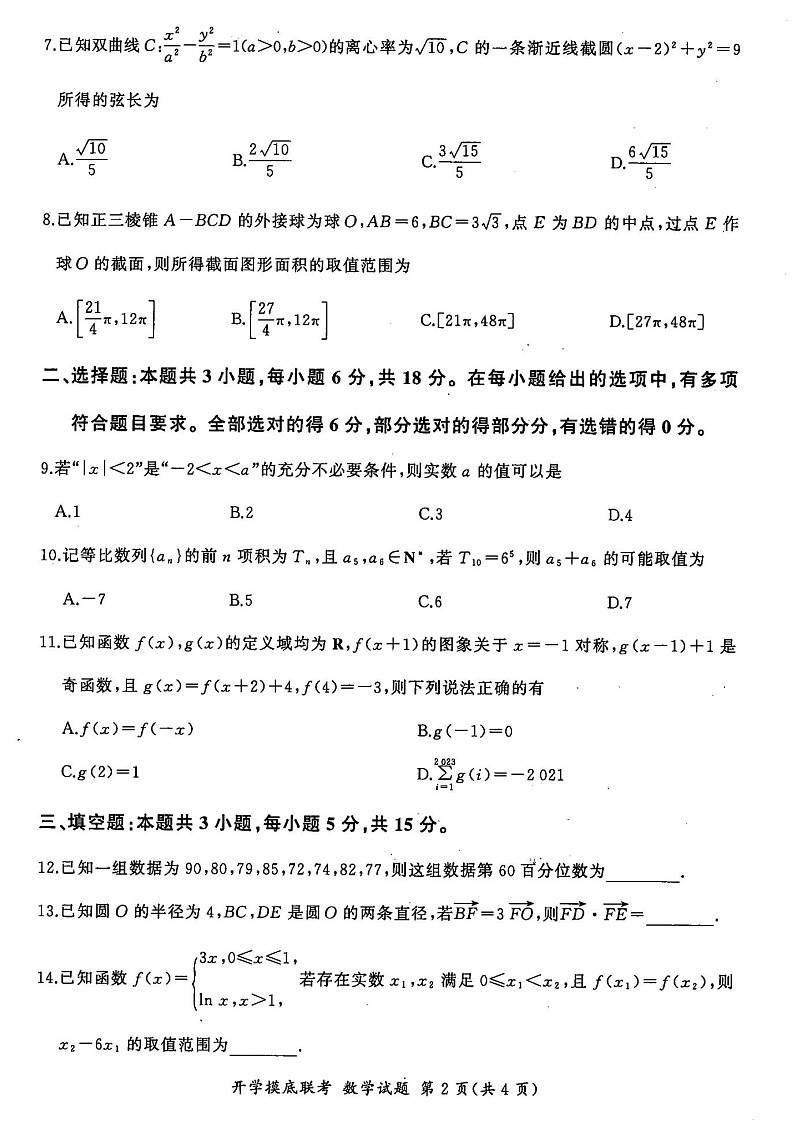 7.已知双曲线 C:x²/a²−y²/b²=1(a>0,b>0)的离心率为√10,C 的一条渐近线截圆(x−2)²+y²=9
所得的弦长为
A.√10/5 B.2√10/5 C.3√15/5 D.6√15/5
8.已知正三棱锥 A−BCD 的外接球为球 O,AB=6,BC=3√3,点 E 为 BD 的中点,过点 E 作
球 O 的截面,则所得截面图形面积的取值范围为
A.[21/4π,12π] B.[27/4π,12π] C.[21π,48π] D.[27π,48π]
二、选择题:本题共 3 小题,每小题 6 分,共 18 分。在每小题给出的选项中,有多项
符合题目要求。全部选对的得 6 分,部分选对的得部分分,有选错的得 0 分。
9.若“|x|<2”是“−2<x<a”的充分不必要条件,则实数 a 的值可以是
A.1 B.2 C.3 D.4
10.记等比数列{aₙ}的前 n 项积为 Tₙ,且 a₅,a₆∈N*,若 T₁₀=6⁵,则 a₅+a₆ 的可能取值为
A.−7 B.5 C.6 D.7
11.已知函数 f(x),g(x)的定义域均为 R,f(x+1)的图象关于 x=−1 对称,g(x−1)+1 是
奇函数,且 g(x)=f(x+2)+4,f(4)=−3,则下列说法正确的有
A.f(x)=f(−x) B.g(−1)=0
C.g(2)=1 D.∑_{i=1}^{2 023}g(i)=−2 021
三、填空题:本题共 3 小题,每小题 5 分,共 15 分。
12.已知一组数据为 90,80,79,85,72,74,82,77,则这组数据第 60 百分位数为________.
13.已知圆 O 的半径为 4,BC,DE 是圆 O 的两条直径,若→BF=3→FO,则→FD·→FE=________.
14.已知函数 f(x)={3x,0≤x≤1, ln x,x>1, 若存在实数 x₁,x₂ 满足 0≤x₁<x₂,且 f(x₁)=f(x₂),则
x₂−6x₁ 的取值范围为________.
开学摸底联考 数学试题 第 2 页(共 4 页)